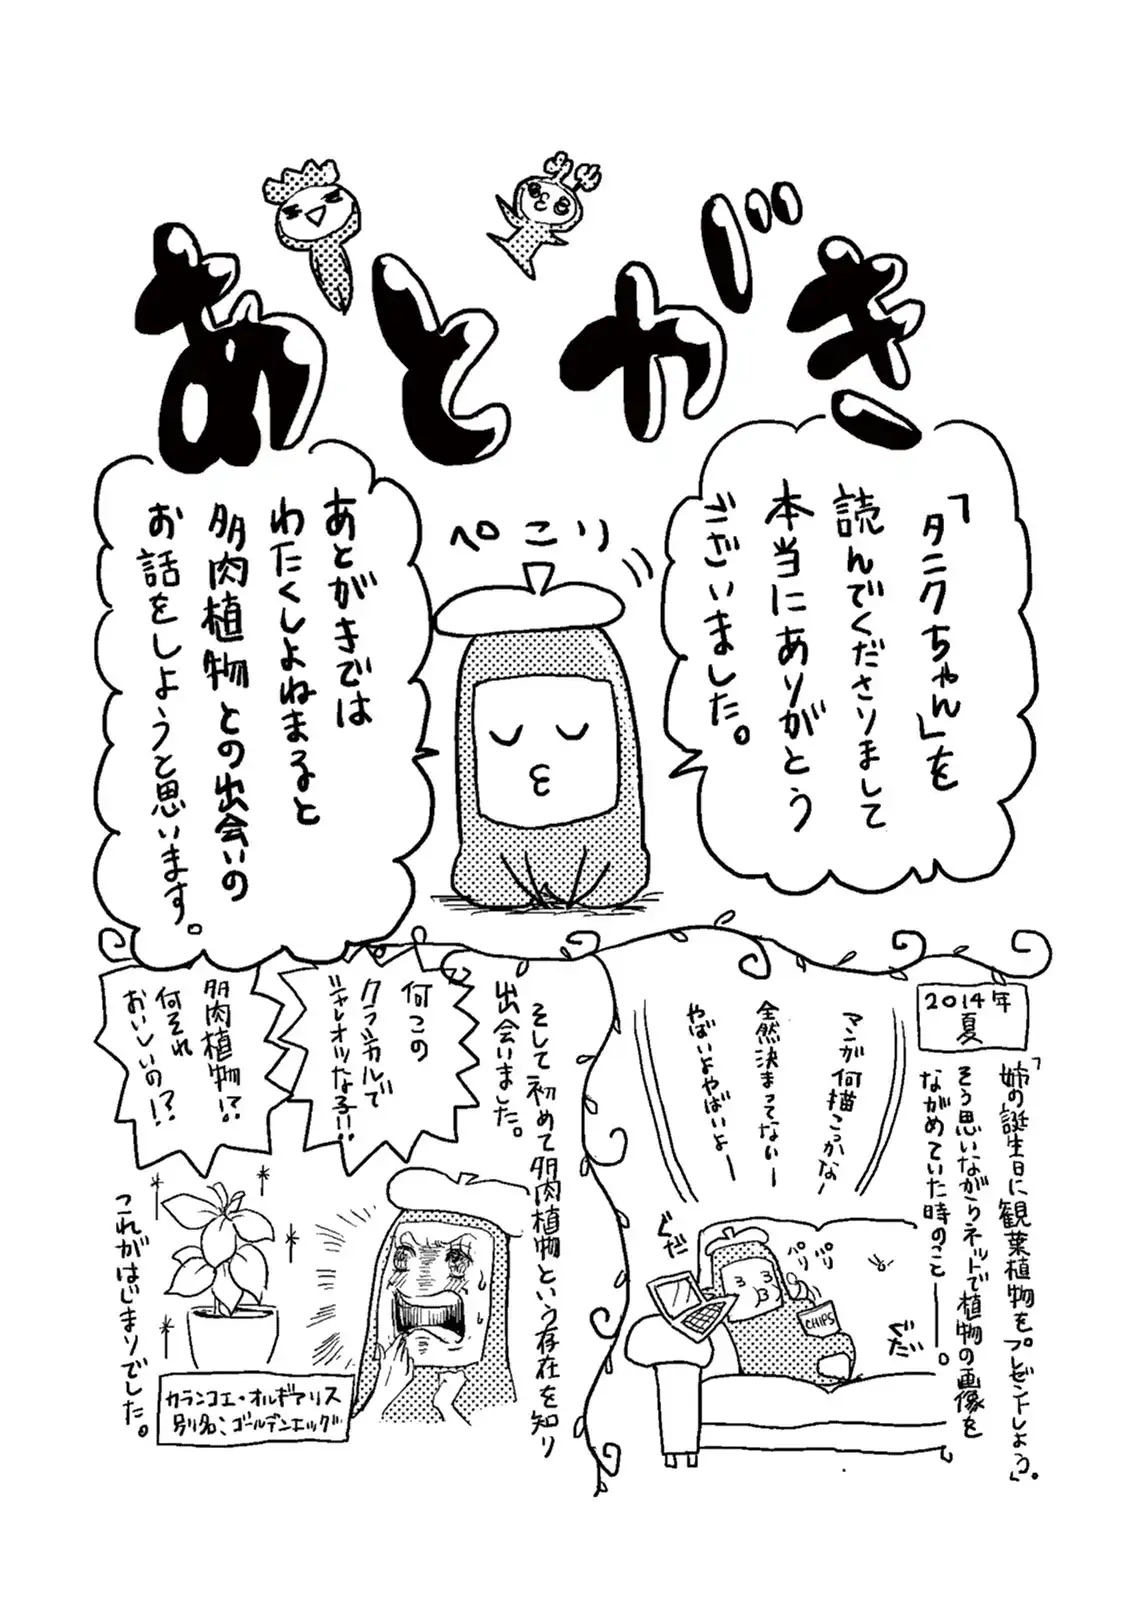 あとがき
「タニクちゃん」を
読んでくださりまして
本当にありがとう
ございました。
ぺこり
あとがきでは
わたくしよねまると
多肉植物との出会いの
お話をしようと思います。
2014年
夏
「姉の誕生日に観葉植物をプレゼントしよう」。
そう思いながらネットで植物の画像を
ながめていた時のこと――。
マンガ何描こっかなー
全然決まってないー
やばいよやばいよー
ぐだ
パリ
パリ
CHIPS
ぐだ
そして初めて多肉植物という存在を知り
出会いました。
何この
クラシカルで
シャレオツな子!!
多肉植物!?
何それ
おいしいの!?
カランコエ・オルギアリス
別名:ゴールデンエッグ
これがはじまりでした。